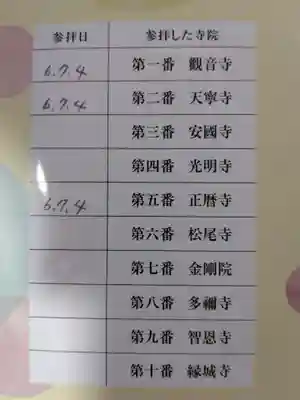 参拝日 参拝した寺院
6.7.4 第一番 観音寺
6.7.4 第二番 天寧寺
第三番 安國寺
第四番 光明寺
6.7.4 第五番 正暦寺
第六番 松尾寺
第七番 金剛院
第八番 多禰寺
第九番 智恩寺
第十番 縁城寺